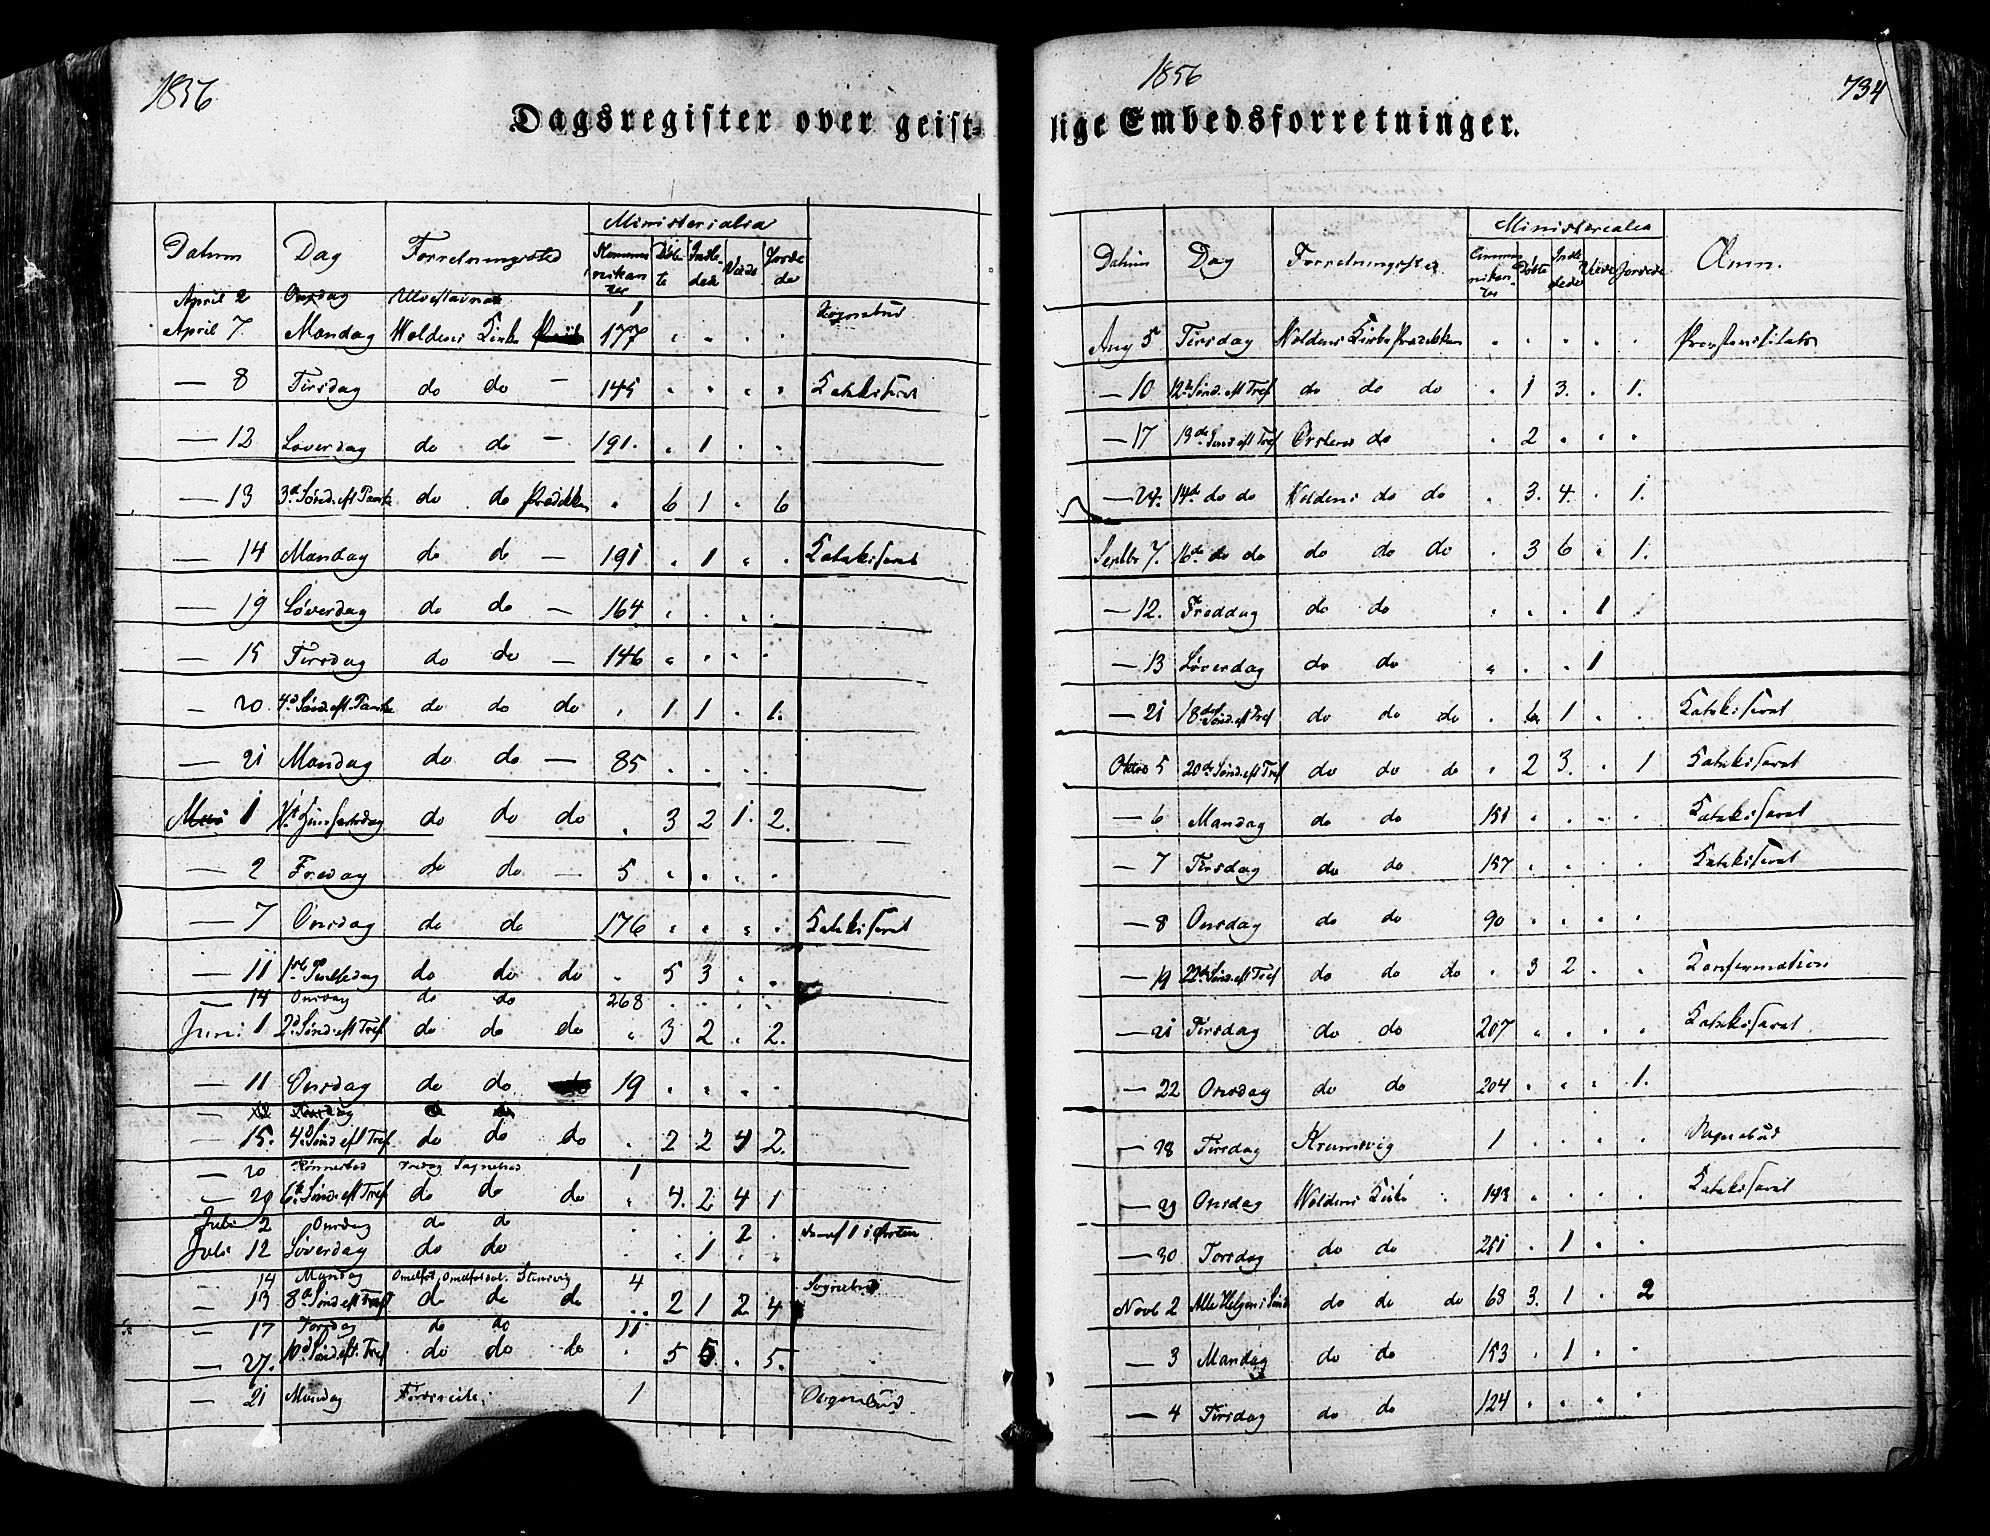 1856
Dagsregister over geist-
Ministerialia
Datum Dag Forretningssted Kommunikanter Døbte Indledede Viede Jordede
April 2 Onsdag 1 Sognebud
April 7. Mandag Woldens Kirke 177 " " " "
— 8 Tirsdag do do — 145 " " " " Katekiserat
— 12 Løverdag do do — 191. " 1 " "
— 13 3d Sønd. eft Paaske do do Prædiken " 6 1 " 6
— 14 Mandag do do — 191 " 1 " " Katekiserat
— 19 Løverdag do do — 164 " " " "
— 15 Tirsdag do do — 146 " " " "
— 20 4d Sønd. eft Paaske do do do " 1 1 " 1.
— 21 Mandag do do — 85 " " " "
Mai 1 do do do " 3 2 1. 2.
— 2 Fredag do do — 5 " " " "
— 7 Onsdag do do 176 " " " " Katekiserat
— 11 1ste Pintsedag do do do " 5 3 " "
— 14 Onsdag do do 268 " " " "
Juni 1 2d Sønd. eft Tref do do do " 3 2 " 2.
— 11 Onsdag do do 19 " " " "
— 15. 4d Sønd eft Tref do do do " 2 2 4 2.
— 20 Fredag Sognebud 1
— 29 6te Sønd. eft Tref do do do " 4. 2 4 1
Juli 2 Onsdag do do 2 deraf 1 i Ørsten
Juli 12 Løverdag do do " " 1 " "
— 14 Mandag 4 Sognebud
— 13 8d Sønd eft Tref do do do " 2 1 2 4
— 17 Torsdag do do 11
— 27. 10d Sønd. eft. Tref do do do " 5 5. " 5.
— 21 Mandag 1 Sognebud
1856
734
lige Embedsforretninger.
Ministerialia
Datum Dag Forretningssted Communikanter Døbte Indledede Viede Jordede Anm.
Aug 5 Tirsdag Woldens Kirke Prædiken " " " " "
— 10 12te Sønd. eft Tref do do do " 1 3. " 1.
— 17 13de Sønd eft Tref Ørstens do " 2 " " "
— 24. 14de do do Woldens do do " 3. 4. " 1.
Septbr 7. 16de do do do do do " 3 6 " 1.
— 12. Freddag do do " " " 1
— 13 Løverdag do do " " " 1
— 21 18de Sønd eft Tref do do do " 6 1 " " Katekiserat
Oktbr 5 20de Sønd. eft Tref do do do " 2 3. " 1 Katekiserat
— 6 Mandag do do 151 " " " " Katekiserat
— 7 Tirsdag do do 157 " " " " Katekiserat
— 8 Onsdag do do 90 " " " "
— 19 22de Sønd eft Tref do do do " 3 2 " " Konfirmation
— 21 Tirsdag do do 207 " " " " Katekiserat
— 22 Onsdag do do 204 " " " 1.
— 28 Tirsdag 1 " " " " Sognebud
— 29 Onsdag Woldens Kirke 143 " " " " Katekiserat
— 30 Torsdag do do 251 " 1 " "
Novb 2 Alle Helgens Sønd do do do 68 3. 1 " 2
— 3 Mandag do do 153 " 1 " "
— 4 Tirsdag do do 124 " " " "